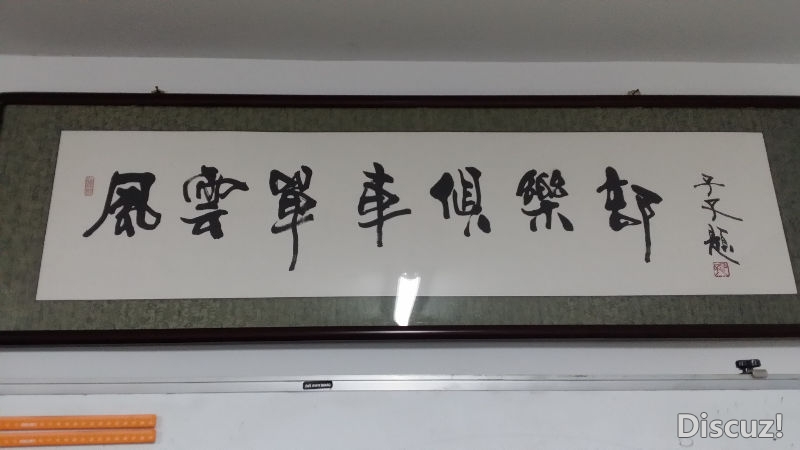 風雲單車俱樂部
子久題
Discuz!